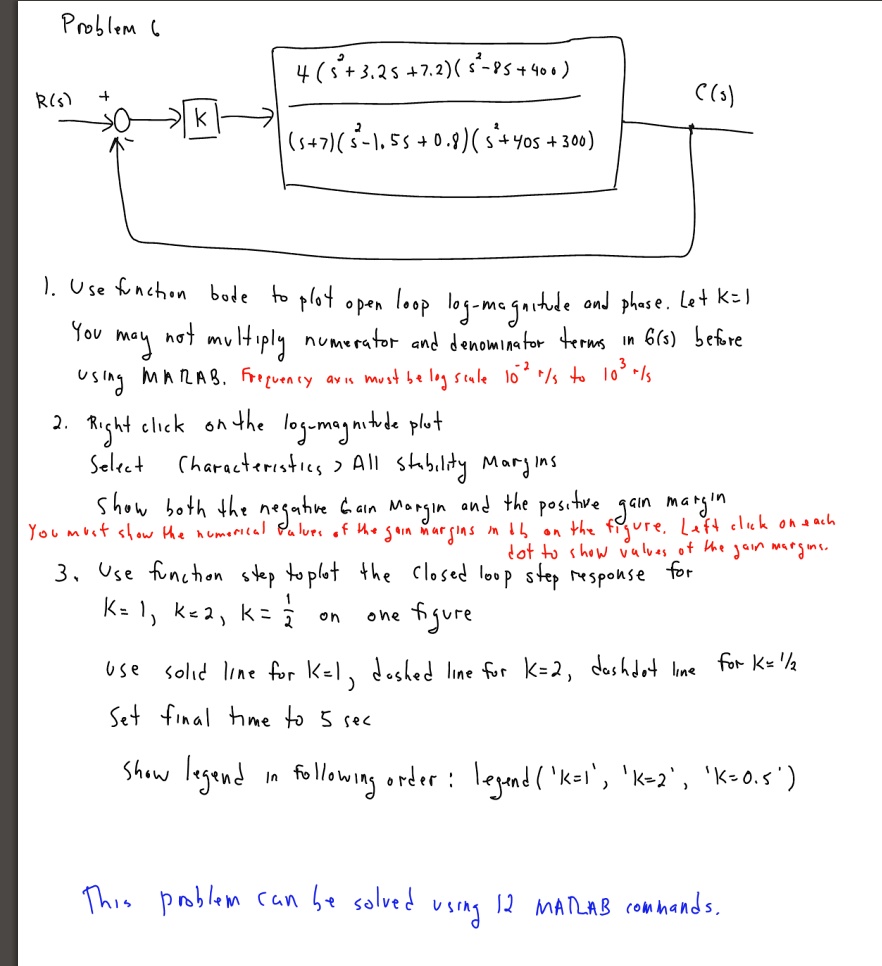 Problem 6
R(s) +
K
4(s²+3.2s+7.2)(s²-8s+400)
(s+7)(s²-1.5s+0.8)(s²+40s+300)
C(s)
-
1. Use function bode to plot open loop log-magnitude and phase. Let K=1
You may not multiply numerator and denominator terms in G(s) before
using MATLAB. Frequency axis must be log scale 10⁻² r/s to 10³ r/s
2. Right click on the log-magnitude plot
Select Characteristics > All Stability Margins
Show both the negative Gain Margin and the positive gain margin
You must show the numerical values of the gain margins in db on the figure. Left click on each
dot to show values of the gain margins.
3. Use function step to plot the closed loop step response for
K=1, K=2, K=1/2 on one figure
Use solid line for K=1, dashed line for K=2, dashdot line for K=1/2
Set final time to 5 sec
Show legend in following order: legend('K=1', 'K=2', 'K=0.5')
This problem can be solved using 12 MATLAB commands.